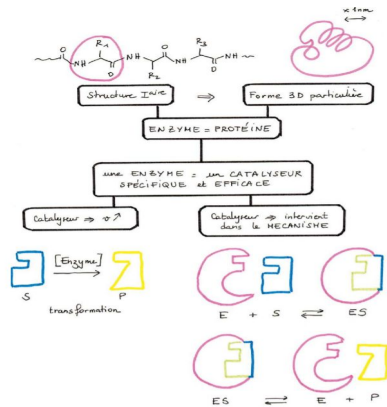 < 1nm
R1 R3
O NH NH O NH
O R2 O
Structure Iaire ⇒ Forme 3D particulière
ENZYME = PROTÉINE
une ENZYME = un CATALYSEUR
SPÉCIFIQUE et EFFICACE
Catalyseur ⇒ v ↗
Catalyseur ⇒ intervient
dans le MECANISME
[Enzyme]
S → P
transformation
E + S ⇌ ES
ES ⇌ E + P